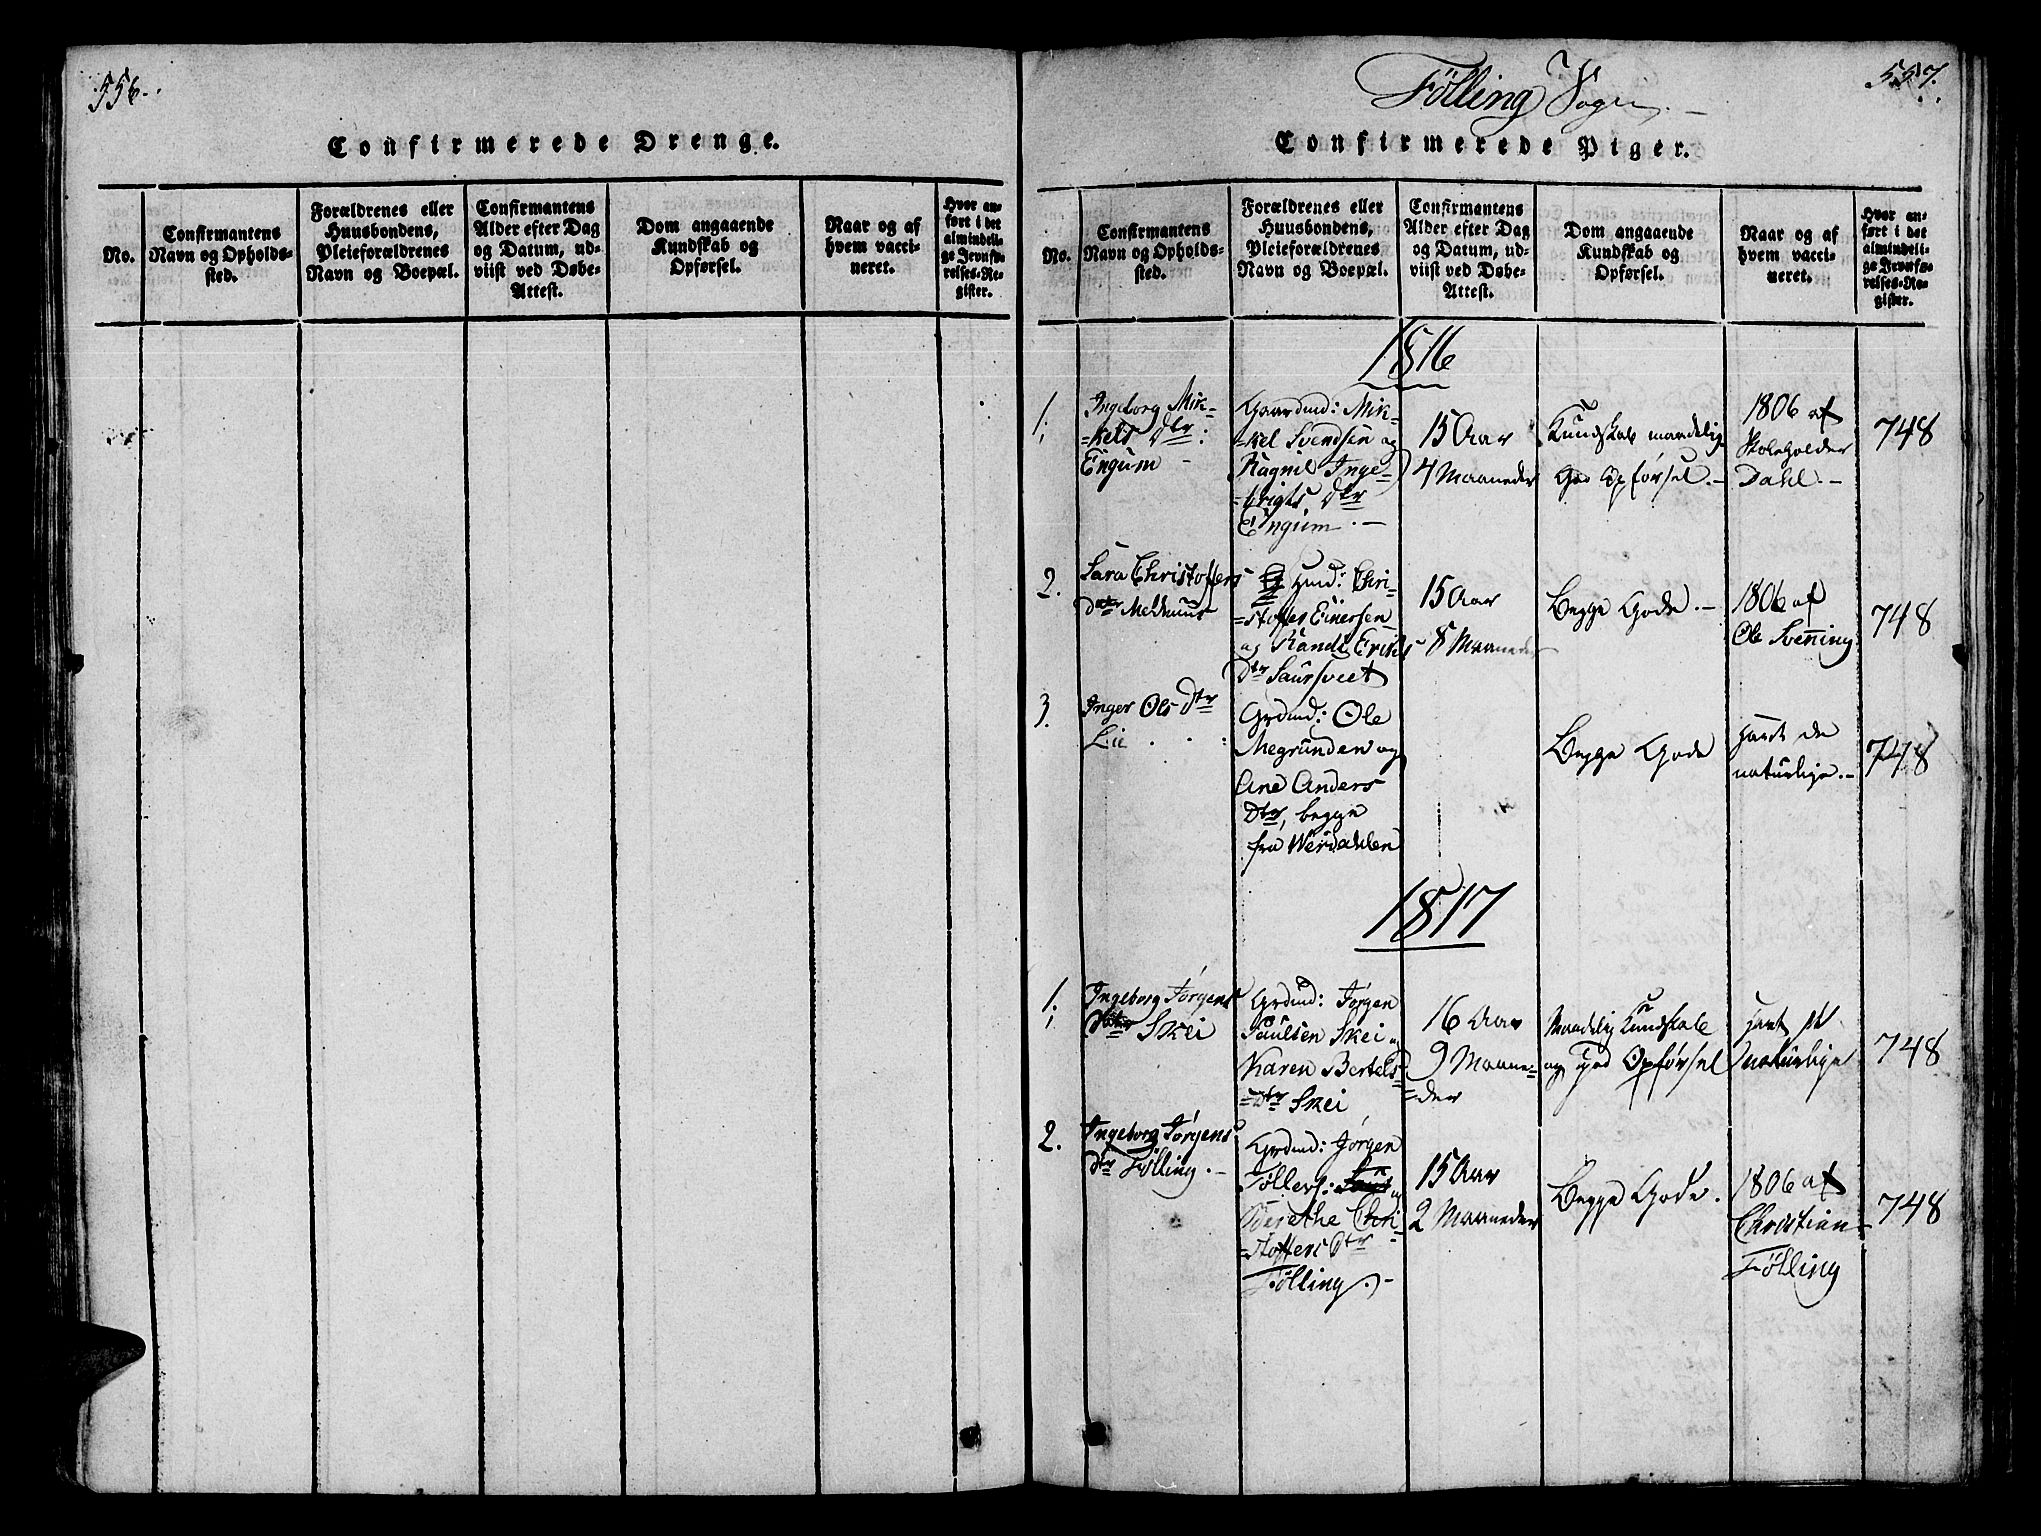 556.
Confirmerede Drenge.
No.
Confirmantens
Navn og Opholds-
sted.
Forældrenes eller
Huusbondens,
Pleieforældrenes
Navn og Boepæl.
Confirmantens
Alder efter Dag
og Datum, ud-
viist ved Døbe-
Attest.
Dom angaaende
Kundskab og
Opførsel.
Naar og af
hvem vacci-
neret.
Hvor an-
ført i det
almindeli-
ge Jevnfø-
relses-Re-
gister.
Følling Sogn.
557.
Confirmerede Piger.
No.
Confirmantens
Navn og Opholds-
sted.
Forældrenes eller
Huusbondens,
Pleieforældrenes
Navn og Boepæl.
Confirmantens
Alder efter Dag
og Datum, ud-
viist ved Døbe-
Attest.
Dom angaaende
Kundskab og
Opførsel.
Naar og af
hvem vacci-
neret.
Hvor an-
ført i det
almindeli-
ge Jevnfø-
relses-Re-
gister.
1816
1.
Ingeborg Mik-
kels Dtr:
Engum
Gaardmd: Mik-
kel Svendsen og
Ragnil Inge-
brigts Dtr
Engum.
15 Aar
4 Maaneder
Kundskab maadelig
God Opførsel.
1806 af
Skoleholder
Dahl.
748
2.
Sara Christoffers
dtr
Hmd: Chri-
stoffer Einersen
og Randi Eriks
Dtr Saursveet
15 Aar
8 Maaneder
Begge Gode.
1806 af
Ole Svenning
748
3.
Inger Ols Dtr
Lie
Grdmd: Ole
Megrunden og
Ane Anders
Dtr, begge
fra Werdahlen
Begge Gode
havt de
naturlige.
748
1817
1.
Ingeborg Jørgens
Datter Skei
Grdmd: Jørgen
Paulsen Skei og
Karen Bertels-
Dtr Skei
16 Aar
9 Maane-
der
Maadelig Kundskab
og God Opførsel
havt de
naturlige
748
2.
Ingeborg Jørgens
dtr Følling.
Grdmd: Jørgen
og
Berethe Chri-
stoffers Dtr
Følling.
15 Aar
2 Maaneder
Begge Gode.
1806 af
Christian
Følling
748